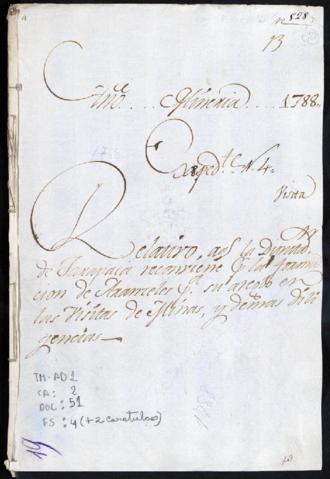 528
13
Año. . . Mineria . . . . 1788.
Exped.te N. 4.
Visita
Relativo, a q.e la Diputac.n
de Tarapacá reconviene p.r la formacion
de Aranceles p.a su arreglo en
las Visitas de Minas, y demas dili
gencias
TM-AD1
CA: 2
DOC: 51
FS: 4 (+2 caratulas)